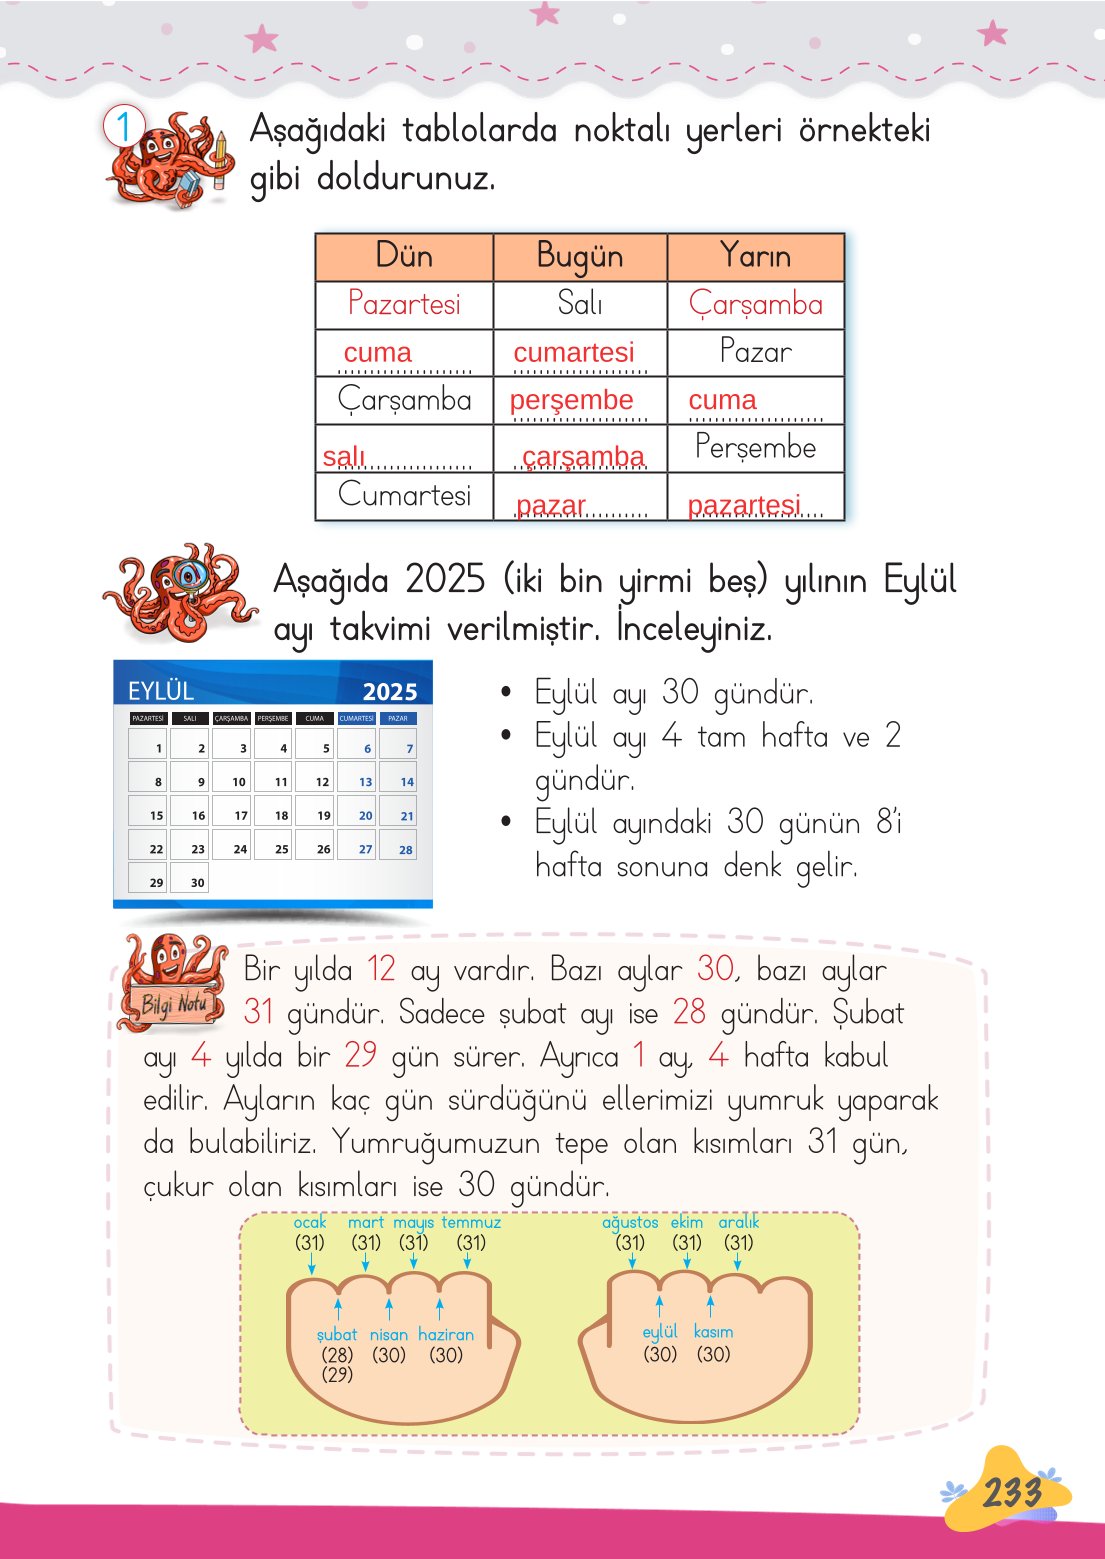 1
Aşağıdaki tablolarda noktalı yerleri örnekteki
gibi doldurunuz.
Dün Bugün Yarın
Pazartesi Salı Çarşamba
cuma cumartesi Pazar
Çarşamba perşembe cuma
salı çarşamba Perşembe
Cumartesi pazar pazartesi
Aşağıda 2025 (iki bin yirmi beş) yılının Eylül
ayı takvimi verilmiştir. İnceleyiniz.
EYLÜL 2025
PAZARTESİ SALI ÇARŞAMBA PERŞEMBE CUMA CUMARTESİ PAZAR
1 2 3 4 5 6 7
8 9 10 11 12 13 14
15 16 17 18 19 20 21
22 23 24 25 26 27 28
29 30
• Eylül ayı 30 gündür.
• Eylül ayı 4 tam hafta ve 2
gündür.
• Eylül ayındaki 30 günün 8'i
hafta sonuna denk gelir.
Bilgi Notu
Bir yılda 12 ay vardır. Bazı aylar 30, bazı aylar
31 gündür. Sadece şubat ayı ise 28 gündür. Şubat
ayı 4 yılda bir 29 gün sürer. Ayrıca 1 ay, 4 hafta kabul
edilir. Ayların kaç gün sürdüğünü ellerimizi yumruk yaparak
da bulabiliriz. Yumruğumuzun tepe olan kısımları 31 gün,
çukur olan kısımları ise 30 gündür.
ocak mart mayıs temmuz ağustos ekim aralık
(31) (31) (31) (31) (31) (31) (31)
şubat nisan haziran eylül kasım
(28) (30) (30) (30) (30)
(29)
233